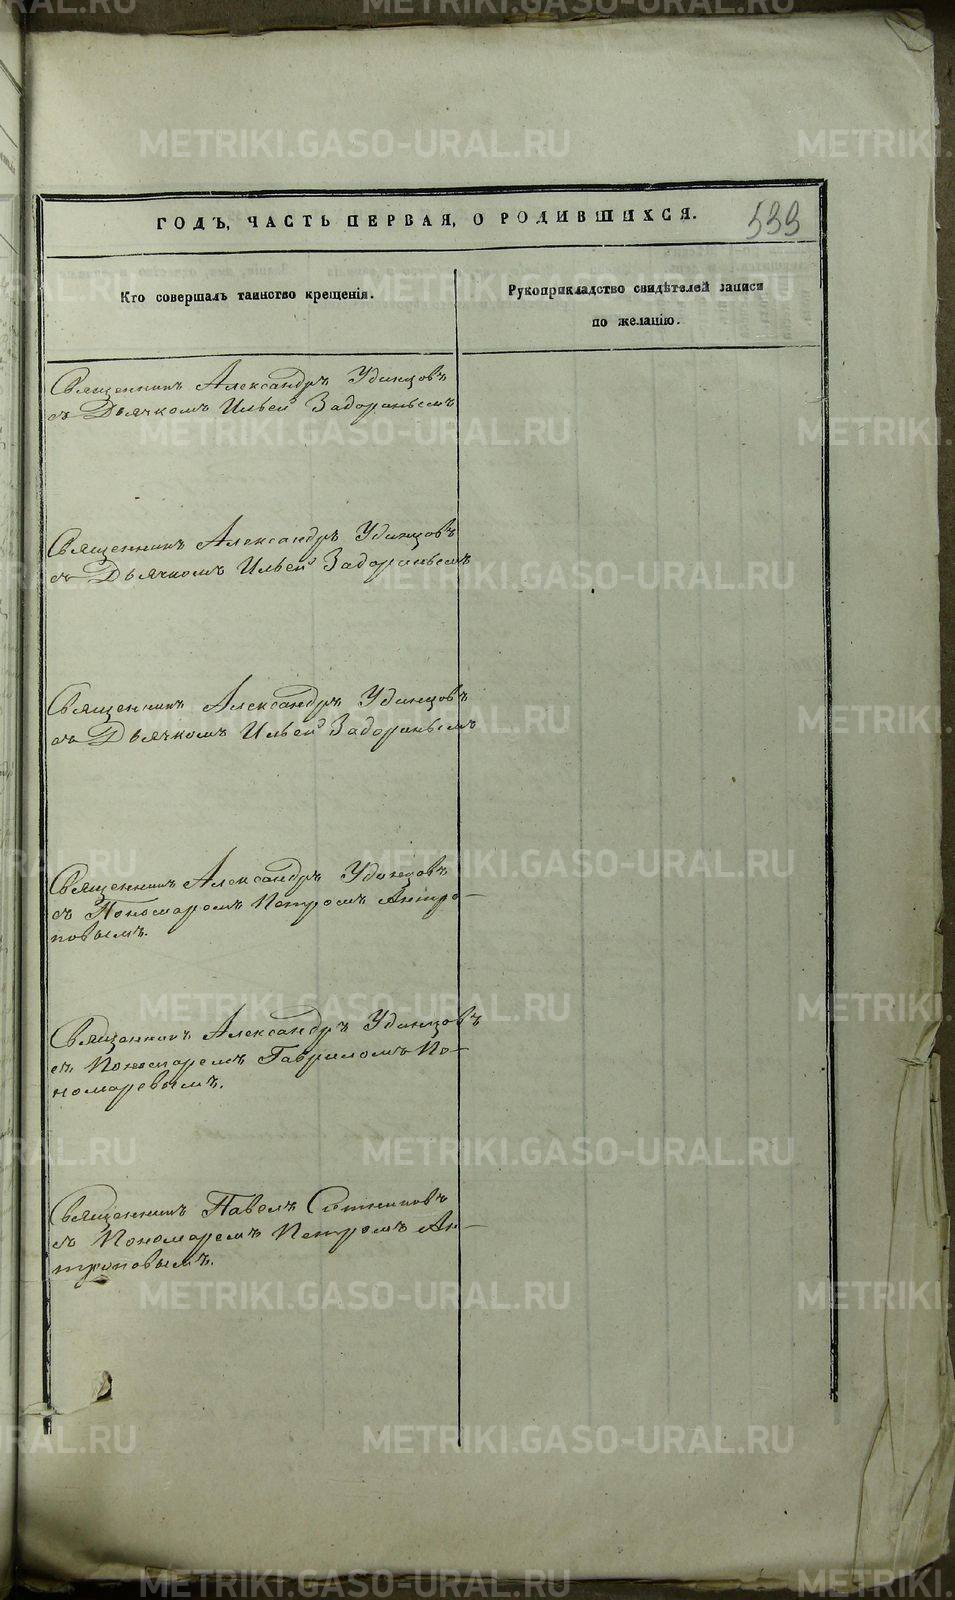 ГОДЪ, ЧАСТЬ ПЕРВАЯ, О РОДИВШИХСЯ.
533
Кто совершалъ таинство крещенія.
Рукоприкладство свидѣтелей записи
по желанію.
Священникъ Александръ Удинцовъ
съ Дьячкомъ Ильей Задоринымъ
Священникъ Александръ Удинцовъ
съ Дьячкомъ Ильей Задоринымъ
Священникъ Александръ Удинцовъ
съ Дьячкомъ Ильей Задоринымъ
Священникъ Александръ Удинцовъ
съ Пономаремъ Петромъ Антро-
повымъ.
Священникъ Александръ Удинцовъ
съ Пономаремъ Гавриломъ По-
номаревымъ.
Священникъ Павелъ Ситниковъ
съ Пономаремъ Петромъ Ан-
троповымъ.
METRIKI.GASO-URAL.RU